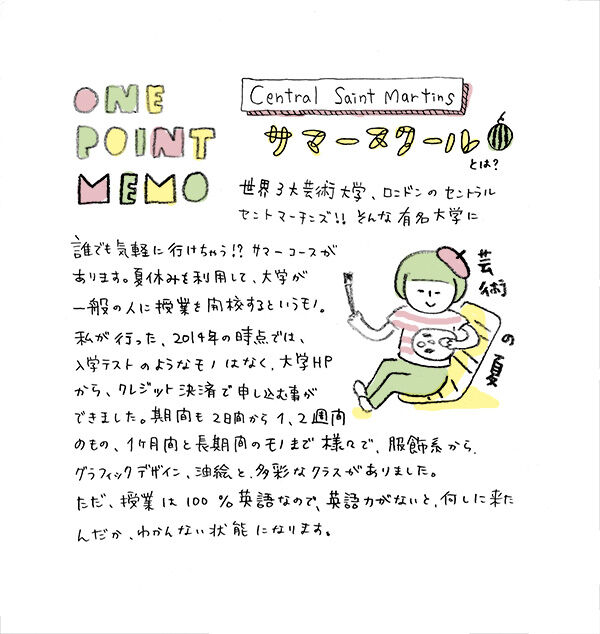 ONE
POINT
MEMO
Central Saint Martins
サマースクール
とは?
世界3大芸術大学、ロンドンのセントラル
セントマーチンズ!!そんな有名大学に
誰でも気軽に行けちゃう!?サマーコースが
あります。夏休みを利用して、大学が
一般の人に授業を開校するというモノ。
私が行った、2014年の時点では、
入学テストのようなモノはなく、大学HP
から、クレジット決済で申し込む事が
できました。期間も2日間から1、2週間
のもの、1ヶ月間と長期間のモノまで様々で、服飾系から、
グラフィックデザイン、油絵と、多彩なクラスがありました。
ただ、授業は100%英語なので、英語力がないと、何しに来た
んだか、わかんない状態になります。
芸術の夏